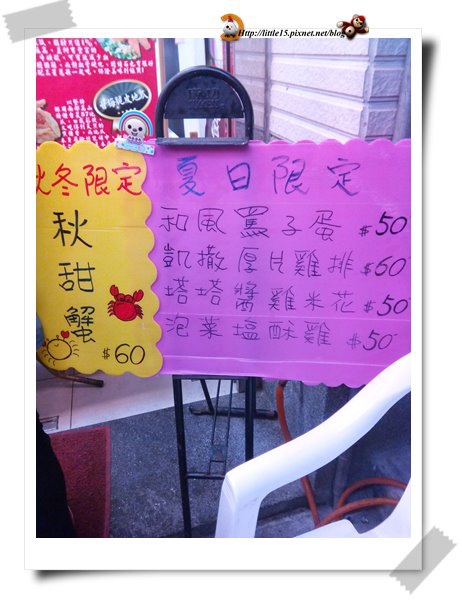 Http://little15.pixnet.net/blog
秋冬限定
秋甜蟹
$60
夏日限定
和風罵子蛋 $50
凱撒厚片雞排 $60
塔塔醬雞米花 $50
泡菜塩酥雞 $50